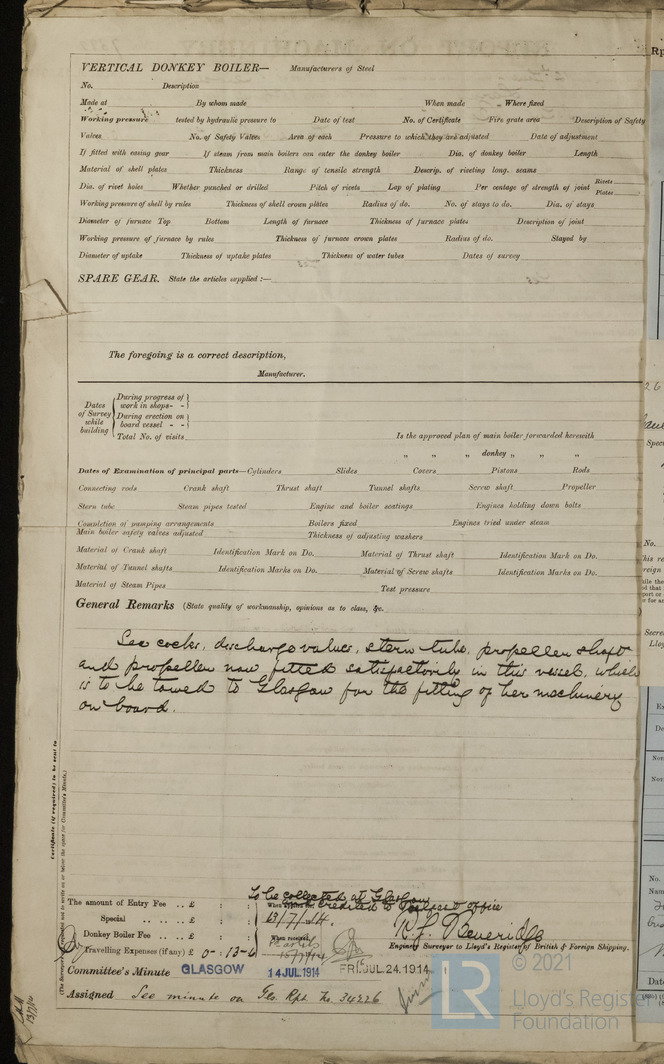 VERTICAL DONKEY BOILER— Manufacturers of Steel
No. Description
Made at By whom made When made Where fixed
Working pressure tested by hydraulic pressure to Date of test No. of Certificate Fire grate area Description of Safety
Valves No. of Safety Valves Area of each Pressure to which they are adjusted Date of adjustment
If fitted with easing gear If steam from main boilers can enter the donkey boiler Dia. of donkey boiler Length
Material of shell plates Thickness Range of tensile strength Descrip. of riveting long. seams
Dia. of rivet holes Whether punched or drilled Pitch of rivets Lap of plating Per centage of strength of joint Rivets Plates
Working pressure of shell by rules Thickness of shell crown plates Radius of do. No. of stays to do. Dia. of stays
Diameter of furnace Top Bottom Length of furnace Thickness of furnace plates Description of joint
Working pressure of furnace by rules Thickness of furnace crown plates Radius of do. Stayed by
Diameter of uptake Thickness of uptake plates Thickness of water tubes Dates of survey
SPARE GEAR. State the articles supplied :—
The foregoing is a correct description,
Manufacturer.
Dates of Survey while building
During progress of work in shops - -
During erection on board vessel - -
Total No. of visits
Is the approved plan of main boiler forwarded herewith
" " " donkey " " "
Dates of Examination of principal parts—Cylinders Slides Covers Pistons Rods
Connecting rods Crank shaft Thrust shaft Tunnel shafts Screw shaft Propeller
Stern tube Steam pipes tested Engine and boiler seatings Engines holding down bolts
Completion of pumping arrangements Boilers fixed Engines tried under steam
Main boiler safety valves adjusted Thickness of adjusting washers
Material of Crank shaft Identification Mark on Do. Material of Thrust shaft Identification Mark on Do.
Material of Tunnel shafts Identification Marks on Do. Material of Screw shafts Identification Marks on Do.
Material of Steam Pipes Test pressure
General Remarks (State quality of workmanship, opinions as to class, &c.
Sea cocks, discharge valves, stern tube, propeller shaft
and propeller now fitted satisfactorily in this vessel, which
is to be towed to Glasgow for the fitting of her machinery
on board.
Certificate (if required) to be sent to
To be collected at Glasgow
credited to
office
The amount of Entry Fee .. £ : : When applied for,
Special .. .. £ : : 13/7/14.
Donkey Boiler Fee .. £ : : When received,
Travelling Expenses (if any) £ 0 - 13-6
R. F. Beveridge
Engineer Surveyor to Lloyd's Register of British & Foreign Shipping.
Committee's Minute GLASGOW 14 JUL 1914 FRI. JUL. 24. 1914
Assigned See minute on Gls. Rpt. No. 34226
© 2021
LR
Lloyd's Register
Foundation